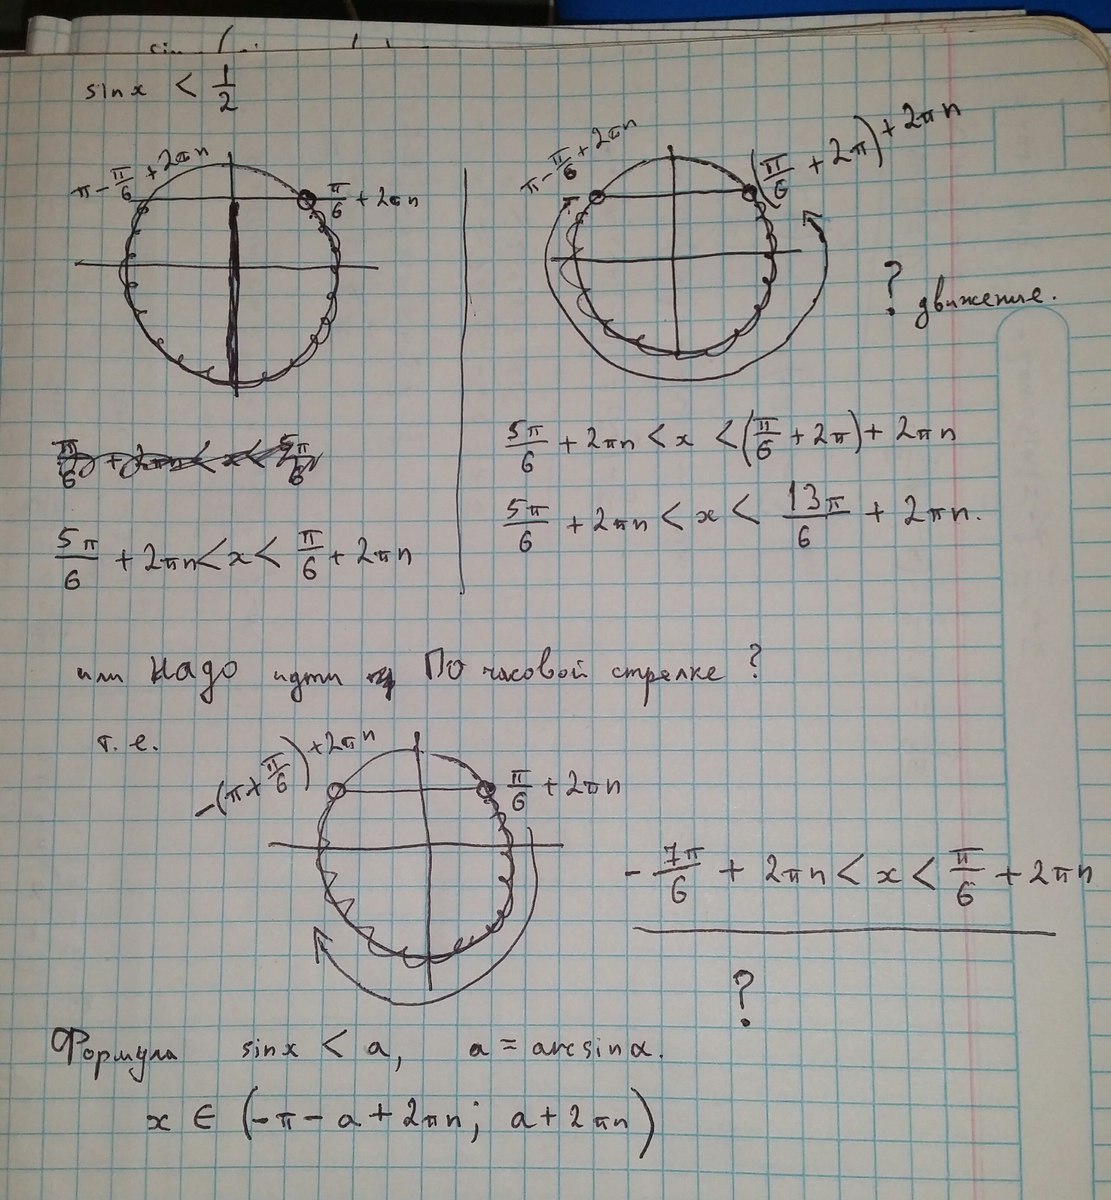 sin x < 1/2
π - π/6 + 2πn
π/6 + 2πn
5π/6 + 2πn < x < π/6 + 2πn
π - π/6 + 2πn
(π/6 + 2π) + 2πn
? движение.
5π/6 + 2πn < x < (π/6 + 2π) + 2πn
5π/6 + 2πn < x < 13π/6 + 2πn.
или надо идти По часовой стрелке ?
т. е.
-(π + π/6) + 2πn
π/6 + 2πn
- 7π/6 + 2πn < x < π/6 + 2πn
?
Формула sin x < a, a = arcsin α.
x ∈ (-π - a + 2πn; a + 2πn)